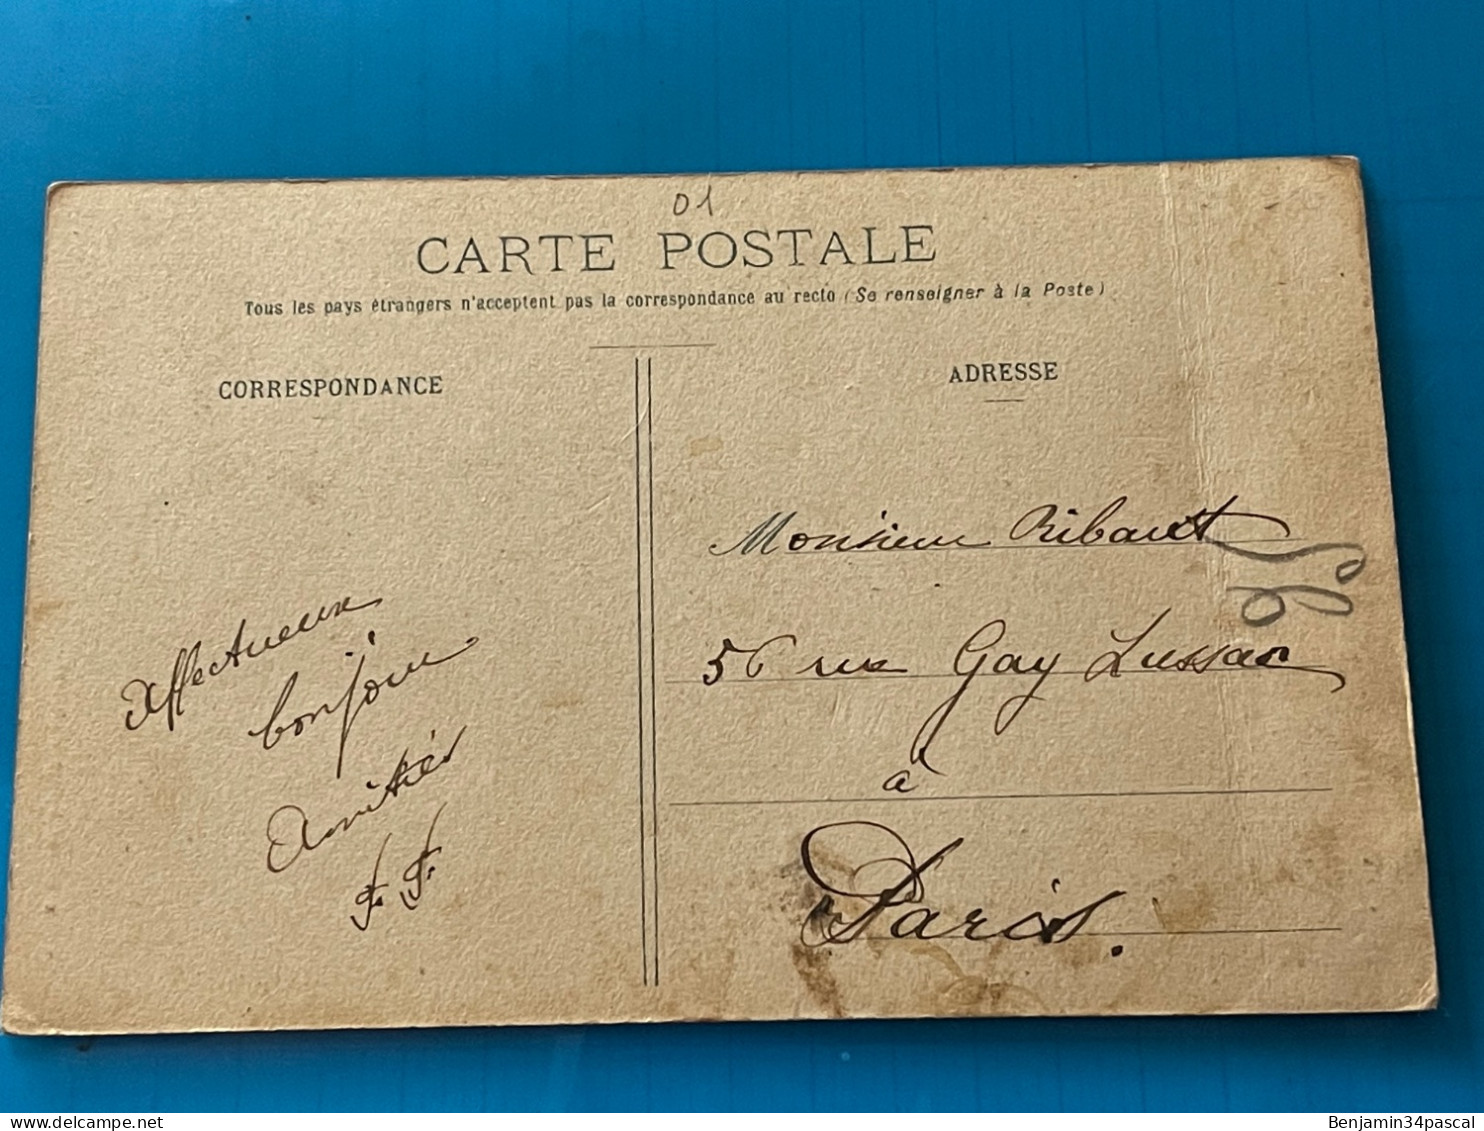 01
CARTE POSTALE
Tous les pays étrangers n'acceptent pas la correspondance au recto (Se renseigner à la Poste)
CORRESPONDANCE
Affectueux
bonjour
Amitiés
F. F.
ADRESSE
Monsieur Ribault
56 rue Gay Lussac
à
Paris.
Benjamin34pascal